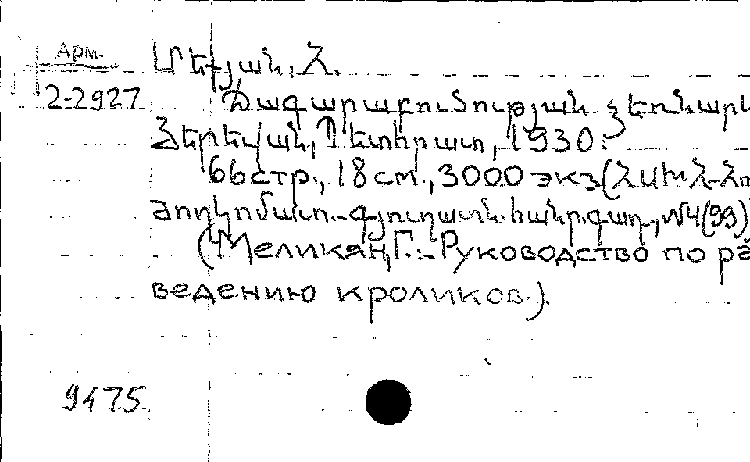 Арм.
2-2927
Մելյան, Հ.
Ճագարաբուծության ձեռնար
Յերեվան, Պետհրատ, 1930.
66 стр., 18 см., 3000 экз (ՀՍԽՀ-Հո
ժողկոմատ.-գյուղատն. հանր. գադ., №4(99)
(Меликян, Г. - Руководство по ра
ведению кроликов.)
9475